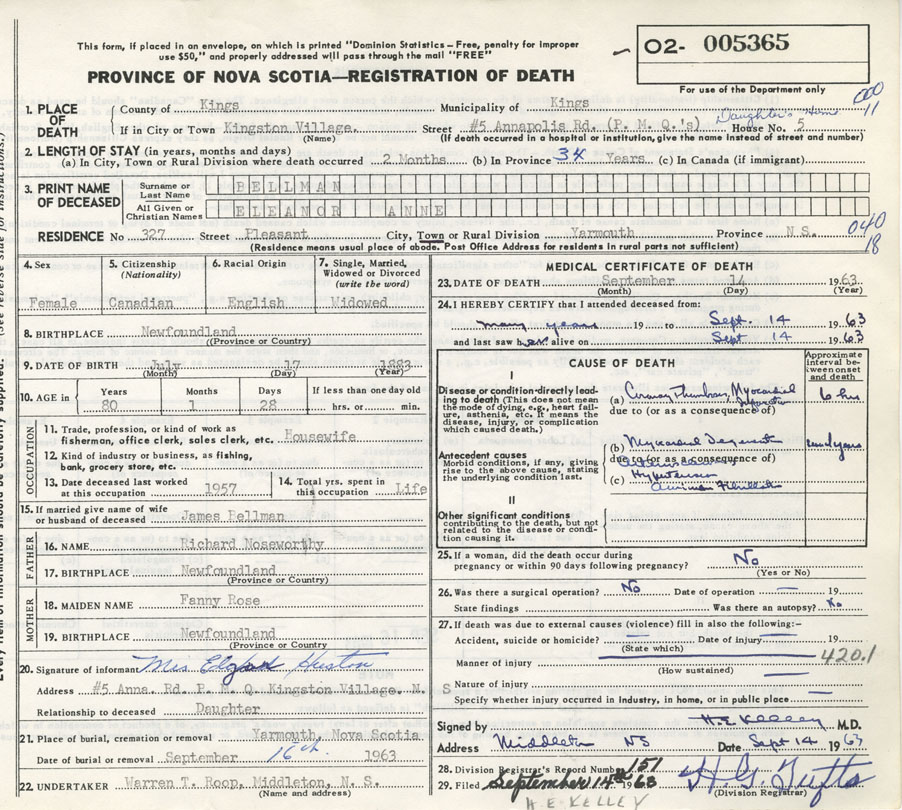 This form, if placed in an envelope, on which is printed "Dominion Statistics – Free, penalty for improper
use $50," and properly addressed will pass through the mail "FREE"
O2- 005365
PROVINCE OF NOVA SCOTIA—REGISTRATION OF DEATH
For use of the Department only
000
11
1. PLACE OF DEATH
County of Kings Municipality of Kings
Daughter's Home
If in City or Town Kingston Village. Street #5 Annapolis Rd. (P. M. Q.'s) House No. 5
(Name) (If death occurred in a hospital or institution, give the name instead of street and number)
2. LENGTH OF STAY (in years, months and days)
(a) In City, Town or Rural Division where death occurred 2 Months (b) In Province 34 Years (c) In Canada (if immigrant)
3. PRINT NAME OF DECEASED
Surname or Last Name BELLMAN
All Given or Christian Names ELEANOR ANNE
RESIDENCE No 327 Street Pleasant City, Town or Rural Division Yarmouth Province N.S.
040
18
(Residence means usual place of abode. Post Office Address for residents in rural parts not sufficient)
4. Sex Female
5. Citizenship (Nationality) Canadian
6. Racial Origin English
7. Single, Married, Widowed or Divorced (write the word) Widowed
8. BIRTHPLACE Newfoundland
((Province or Country)
9. DATE OF BIRTH July 17 1883
(Month) (Day) (Year)
10. AGE in Years 80 Months 1 Days 28 If less than one day old hrs. or min.
OCCUPATION
11. Trade, profession, or kind of work as
fisherman, office clerk, sales clerk, etc. Housewife
12. Kind of industry or business, as fishing,
bank, grocery store, etc.
13. Date deceased last worked at this occupation 1957
14. Total yrs. spent in this occupation Life
15. If married give name of wife
or husband of deceased James Bellman
FATHER
16. NAME Richard Noseworthy
17. BIRTHPLACE Newfoundland
(Province or Country)
MOTHER
18. MAIDEN NAME Fanny Rose
19. BIRTHPLACE Newfoundland
(Province or Country)
20. Signature of informant Mrs Huston
Address #5 Anna. Rd. P. M. Q. Kingston Village. N. S
Relationship to deceased Daughter
21. Place of burial, cremation or removal Yarmouth, Nova Scotia
Date of burial or removal September 16th 1963
22. UNDERTAKER Warren T. Roop, Middleton, N. S.
(Name and address)
MEDICAL CERTIFICATE OF DEATH
23. DATE OF DEATH September 14 1963
(Month) (Day) (Year)
24. I HEREBY CERTIFY that I attended deceased from:
many years 19 to Sept. 14 1963
and last saw her alive on Sept 14 1963
CAUSE OF DEATH
Approximate interval between onset and death
I
Disease or condition directly leading to death (This does not mean the mode of dying, e.g., heart failure, asthenia, etc. It means the disease, injury, or complication which caused death.)
(a) Coronary Thrombosis, Myocardial 6 hrs
due to (or as a consequence of)
Antecedent causes
Morbid conditions, if any, giving rise to the above cause, stating the underlying condition last.
(b) Myocardial years
due to (or as a consequence of)
(c) Hypertension
Auricular Fibrillation
II
Other significant conditions
contributing to the death, but not related to the disease or condition causing it.
25. If a woman, did the death occur during
pregnancy or within 90 days following pregnancy? No
(Yes or No)
26. Was there a surgical operation? No Date of operation — 19
State findings Was there an autopsy? No
27. If death was due to external causes (violence) fill in also the following:–
Accident, suicide or homicide? — Date of injury — 19
(State which)
420.1
Manner of injury
(How sustained)
Nature of injury —
Specify whether injury occurred in industry, in home, or in public place —
Signed by H.E Kelley M.D.
Address Middleton NS Date Sept 14 1963
28. Division Registrar's Record Number 151
29. Filed September 14th 1963 H. G. Tufts
(Division Registrar)
H. E. KELLEY